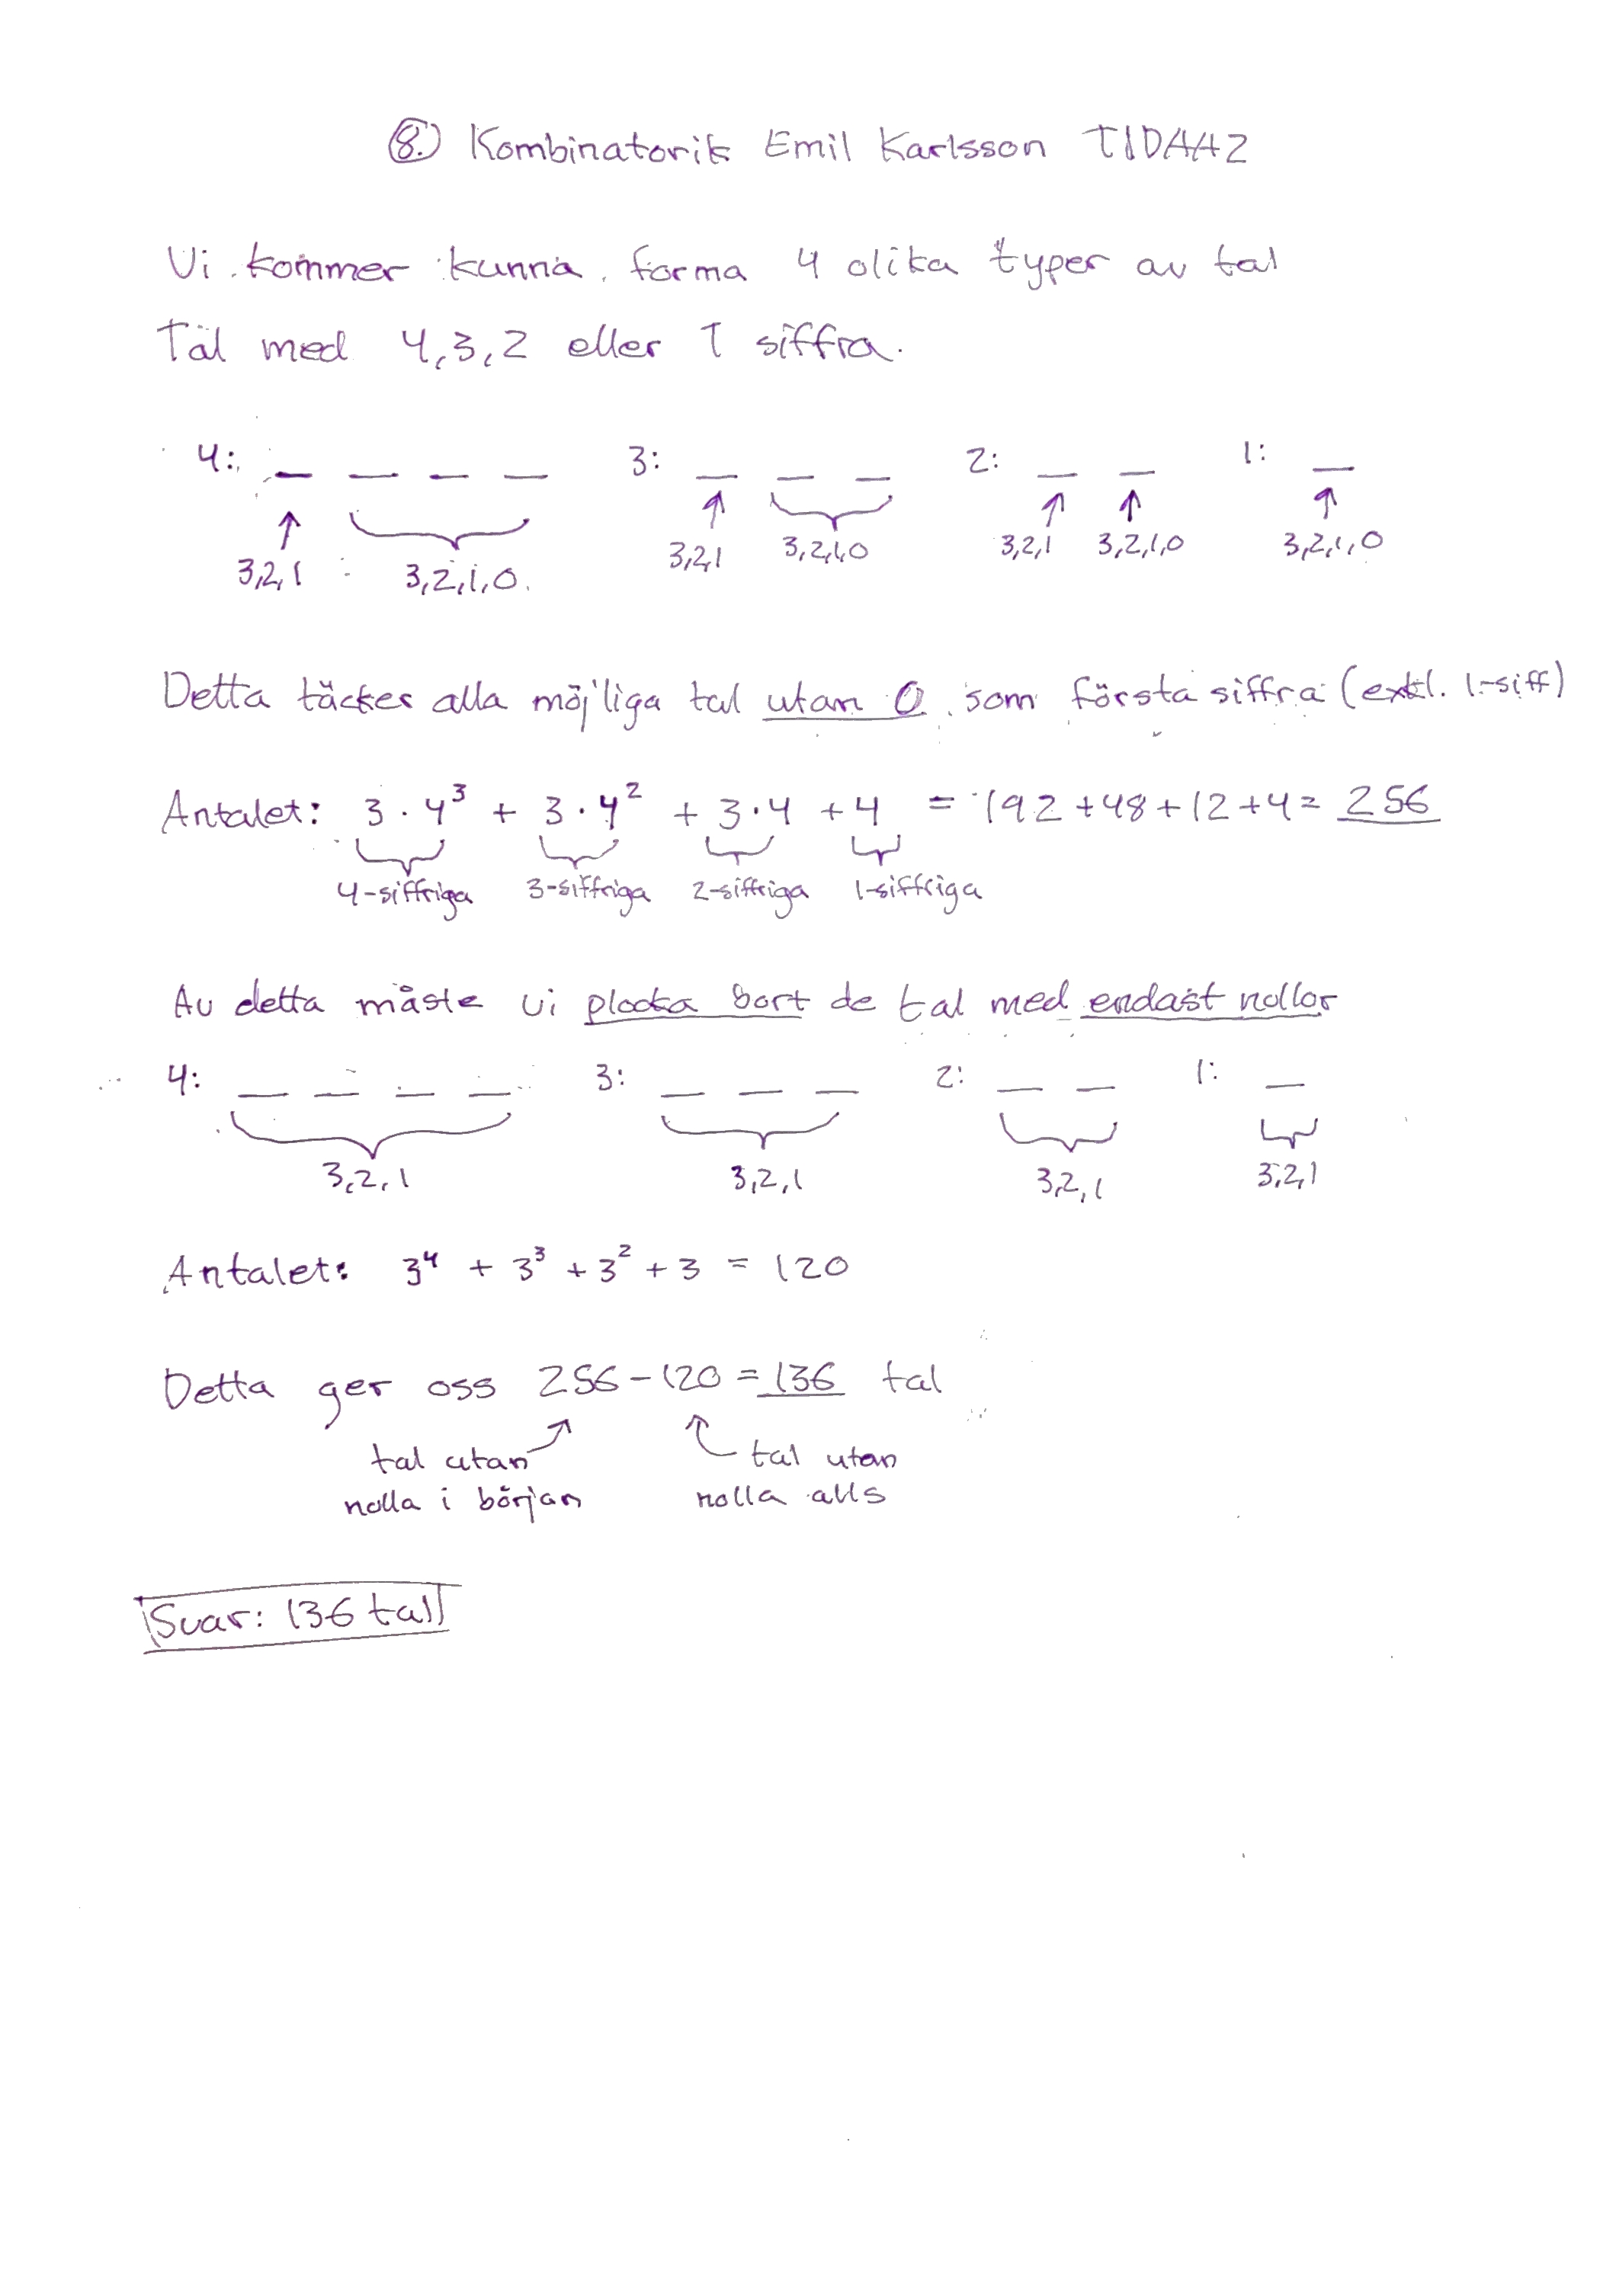 8. Kombinatorik Emil Karlsson TIDAA2
Vi kommer kunna forma 4 olika typer av tal
Tal med 4,3,2 eller 1 siffra.
4: _ _ _ _ 3: _ _ _ 2: _ _ 1: _
3,2,1 3,2,1,0. 3,2,1 3,2,1,0 3,2,1 3,2,1,0 3,2,1,0
Detta täcker alla möjliga tal utan 0 som första siffra (exkl. 1-siff)
Antalet: 3 · 4³ + 3 · 4² + 3 · 4 + 4 = 192 + 48 + 12 + 4 = 256
4-siffriga 3-siffriga 2-siffriga 1-siffriga
Av detta måste vi plocka bort de tal med endast nollor
4: _ _ _ _ 3: _ _ _ 2: _ _ 1: _
3,2,1 3,2,1 3,2,1 3,2,1
Antalet: 3⁴ + 3³ + 3² + 3 = 120
Detta ger oss 256 - 120 = 136 tal
tal utan nolla i början
tal utan nolla alls
Svar: 136 tal